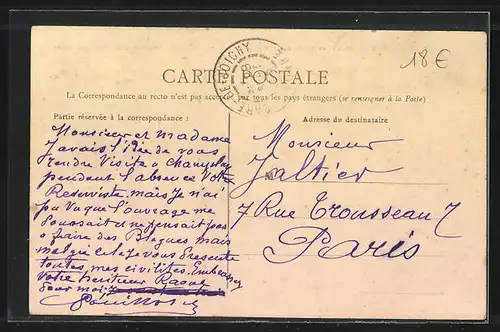 18€
GARE DE JOIGNY
CARTE POSTALE
La Correspondance au recto n'est pas acceptée par tous les pays étrangers (se renseigner à la Poste)
Partie réservée à la correspondance :
Adresse du destinataire
Monsieur et Madame
J'avais l'idée de vous
rendre Visite a
pendant l'absence Votre
Reserviste, mais Je n'ai
pu Vu que l'ouvrage me
Poussait et ne pensait pas
a faire des Blagues mais
malgré cela je vous Presente
toutes mes civilités. Embrassez
Votre heritier Raoul
pour moi
Monsieur
Jaltier
7 Rue Trousseau 7
Paris